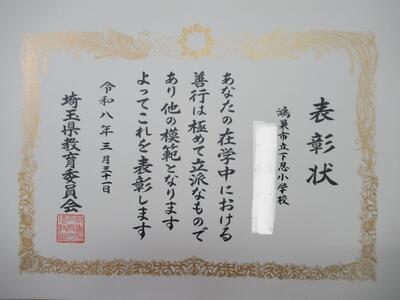 表彰状
鴻巣市立下忍小学校
あなたの在学中における
善行は極めて立派なもので
あり他の模範となります
よってこれを表彰します
令和八年三月三十一日
埼玉県教育委員会